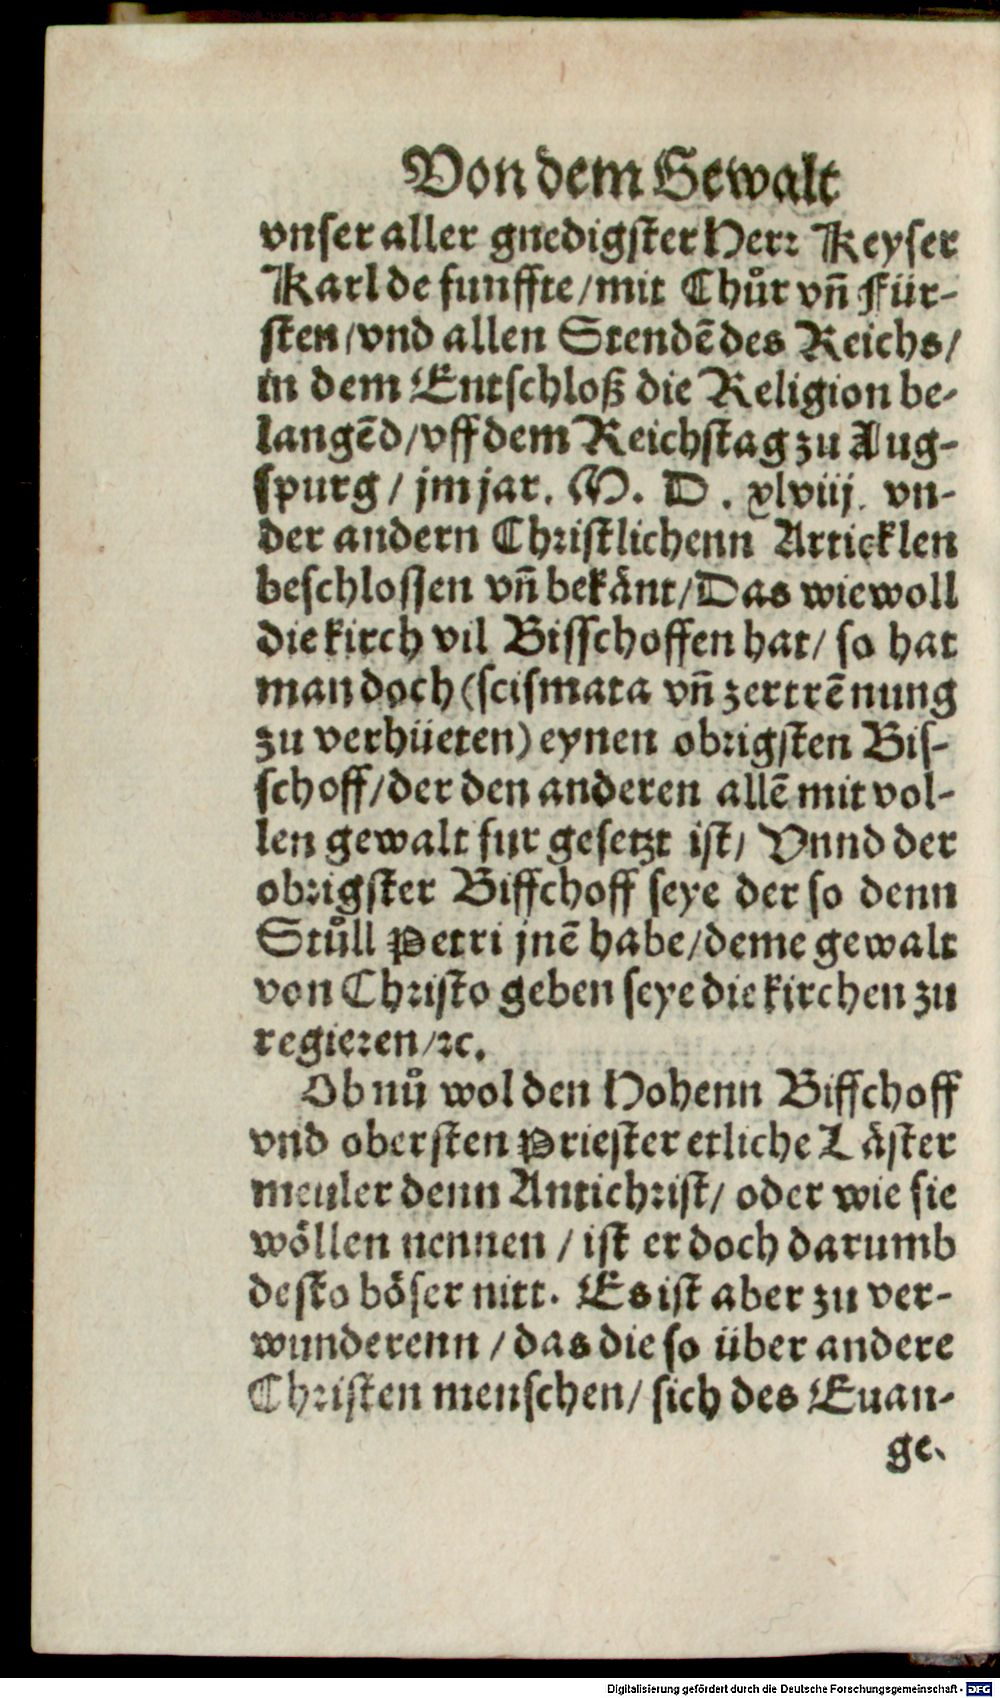 Von dem Gewalt
vnser aller gnedigster Herꝛ Keyser
Karl de funffte/mit Chuͤr vñ Für-
sten/vnd allen Stendẽ des Reichs/
in dem Entschloß die Religion be-
langẽd/vff dem Reichstag zu Aug-
spurg/ jm jar. M. D. xlviij. vn-
der andern Chꝛistlichenn Artickלen
beschlossen vñ bekänt/Das wiewoll
die kirch vil Bisschoffen hat/ so hat
man doch (scismata vñ zertrẽnung
zu verhüeten) eynen obꝛigsten Bis-
schoff/der den anderen allẽ mit vol-
len gewalt fur gesetzt ist/ Vnnd der
obꝛigster Biffchoff seye der so denn
Stůll Petri jnẽ habe/deme gewalt
von Chꝛisto geben seye die kirchen zu
regieꝛen/ꝛc.
Ob nů wol den Hohenn Biffchoff
vnd obersten Priester etliche Läster
meuler denn Antichꝛist/ oder wie sie
wöllen nennen / ist er doch darumb
desto böser nitt. Es ist aber zu ver-
wunderenn / das die so über andere
Chꝛisten menschen/ sich des Euan-
ge-
Digitalisierung gefördert durch die Deutsche Forschungsgemeinschaft - DFG